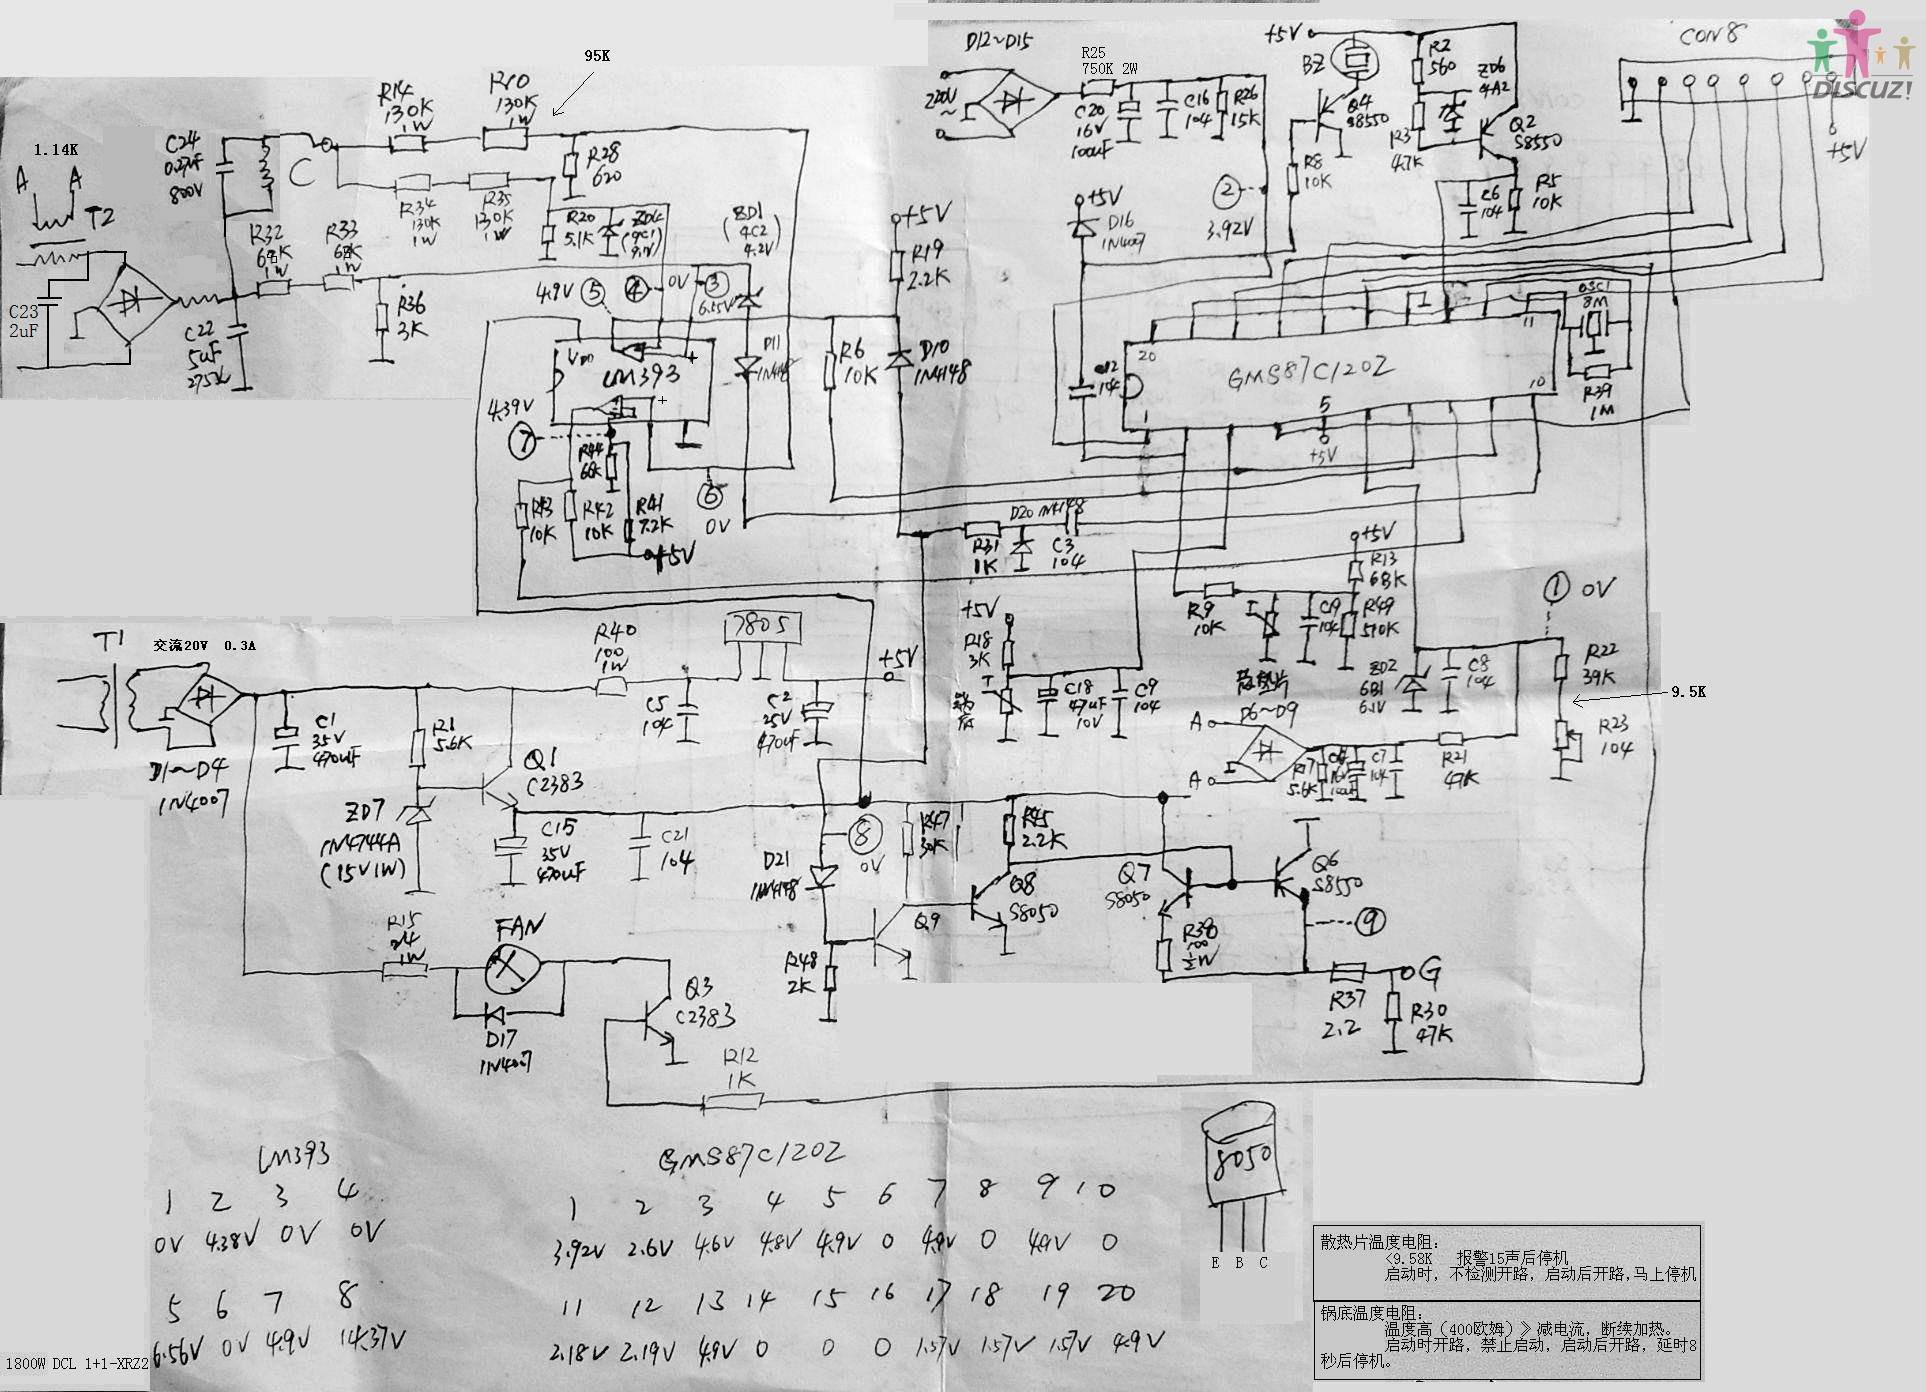 D12~D15
R25
750K 2W
+5V
BZ
R2
560
ZD6
4A2
CON8
DISCUZ!
95K
R14
130K
1W
R10
130K
1W
220V
~
C20
16V
100uF
C16
104
R26
15K
Q4
S8550
R3
4.7K
Q2
S8550
+5V
C24
0.27uF
800V
1.14K
A
A
T2
C
R28
620
R8
10K
2
3.92V
C6
104
R5
10K
R34
130K
1W
R35
130K
1W
R20
5.1K
ZD4
(9C1)
9.1V
BD1
(4C2)
4.2V
+5V
D16
1N4007
+5V
R19
2.2K
R32
68K
1W
R33
68K
1W
C23
2uF
C22
5uF
275V
R36
3K
4.9V
5
4
0V
3
6.55V
OSC1
8M
R39
1M
VDD
LM393
+
+
D11
1N4148
R6
10K
D10
1N4148
C12
104
20
11
GMS87C1202
1
5
10
+5V
4.39V
7
R44
68K
R43
10K
R42
10K
R41
7.2K
+5V
6
0V
D20 1N4148
R31
1K
C3
104
+5V
R13
68K
R9
10K
C19
104
R49
510K
散热片
1
0V
+5V
R18
3K
锅底
C18
47uF
10V
C9
104
ZD2
6B1
6.1V
C8
104
R22
39K
9.5K
R23
104
T1
交流20V 0.3A
R40
100
1W
7805
+5V
C1
35V
470uF
R1
5.6K
C5
104
C2
25V
470uF
D1~D4
1N4007
Q1
C2383
A
D6~D9
A
R17
5.6K
C7
104
R21
47K
ZD7
1N4744A
(15V1W)
C15
35V
470uF
C21
104
8
0V
D21
1N4148
R47
30K
R45
2.2K
Q9
Q8
S8050
Q7
S8050
Q6
S8550
9
R15
24
1W
FAN
D17
1N4007
Q3
C2383
R48
2K
R38
100
½W
G
R37
2.2
R30
47K
R12
1K
8050
E B C
LM393
1 2 3 4
0V 4.38V 0V 0V
5 6 7 8
6.56V 0V 4.9V 14.37V
GMS87C1202
1 2 3 4 5 6 7 8 9 10
3.92V 2.6V 4.6V 4.8V 4.9V 0 4.9V 0 4.9V 0
11 12 13 14 15 16 17 18 19 20
2.18V 2.19V 4.9V 0 0 0 1.57V 1.57V 1.57V 4.9V
1800W DCL 1+1-XRZ2
散热片温度电阻:
<9.58K 报警15声后停机
启动时, 不检测开路, 启动后开路,马上停机
锅底温度电阻:
温度高（400欧姆）》减电流, 断续加热。
启动时开路, 禁止启动, 启动后开路, 延时8
秒后停机。